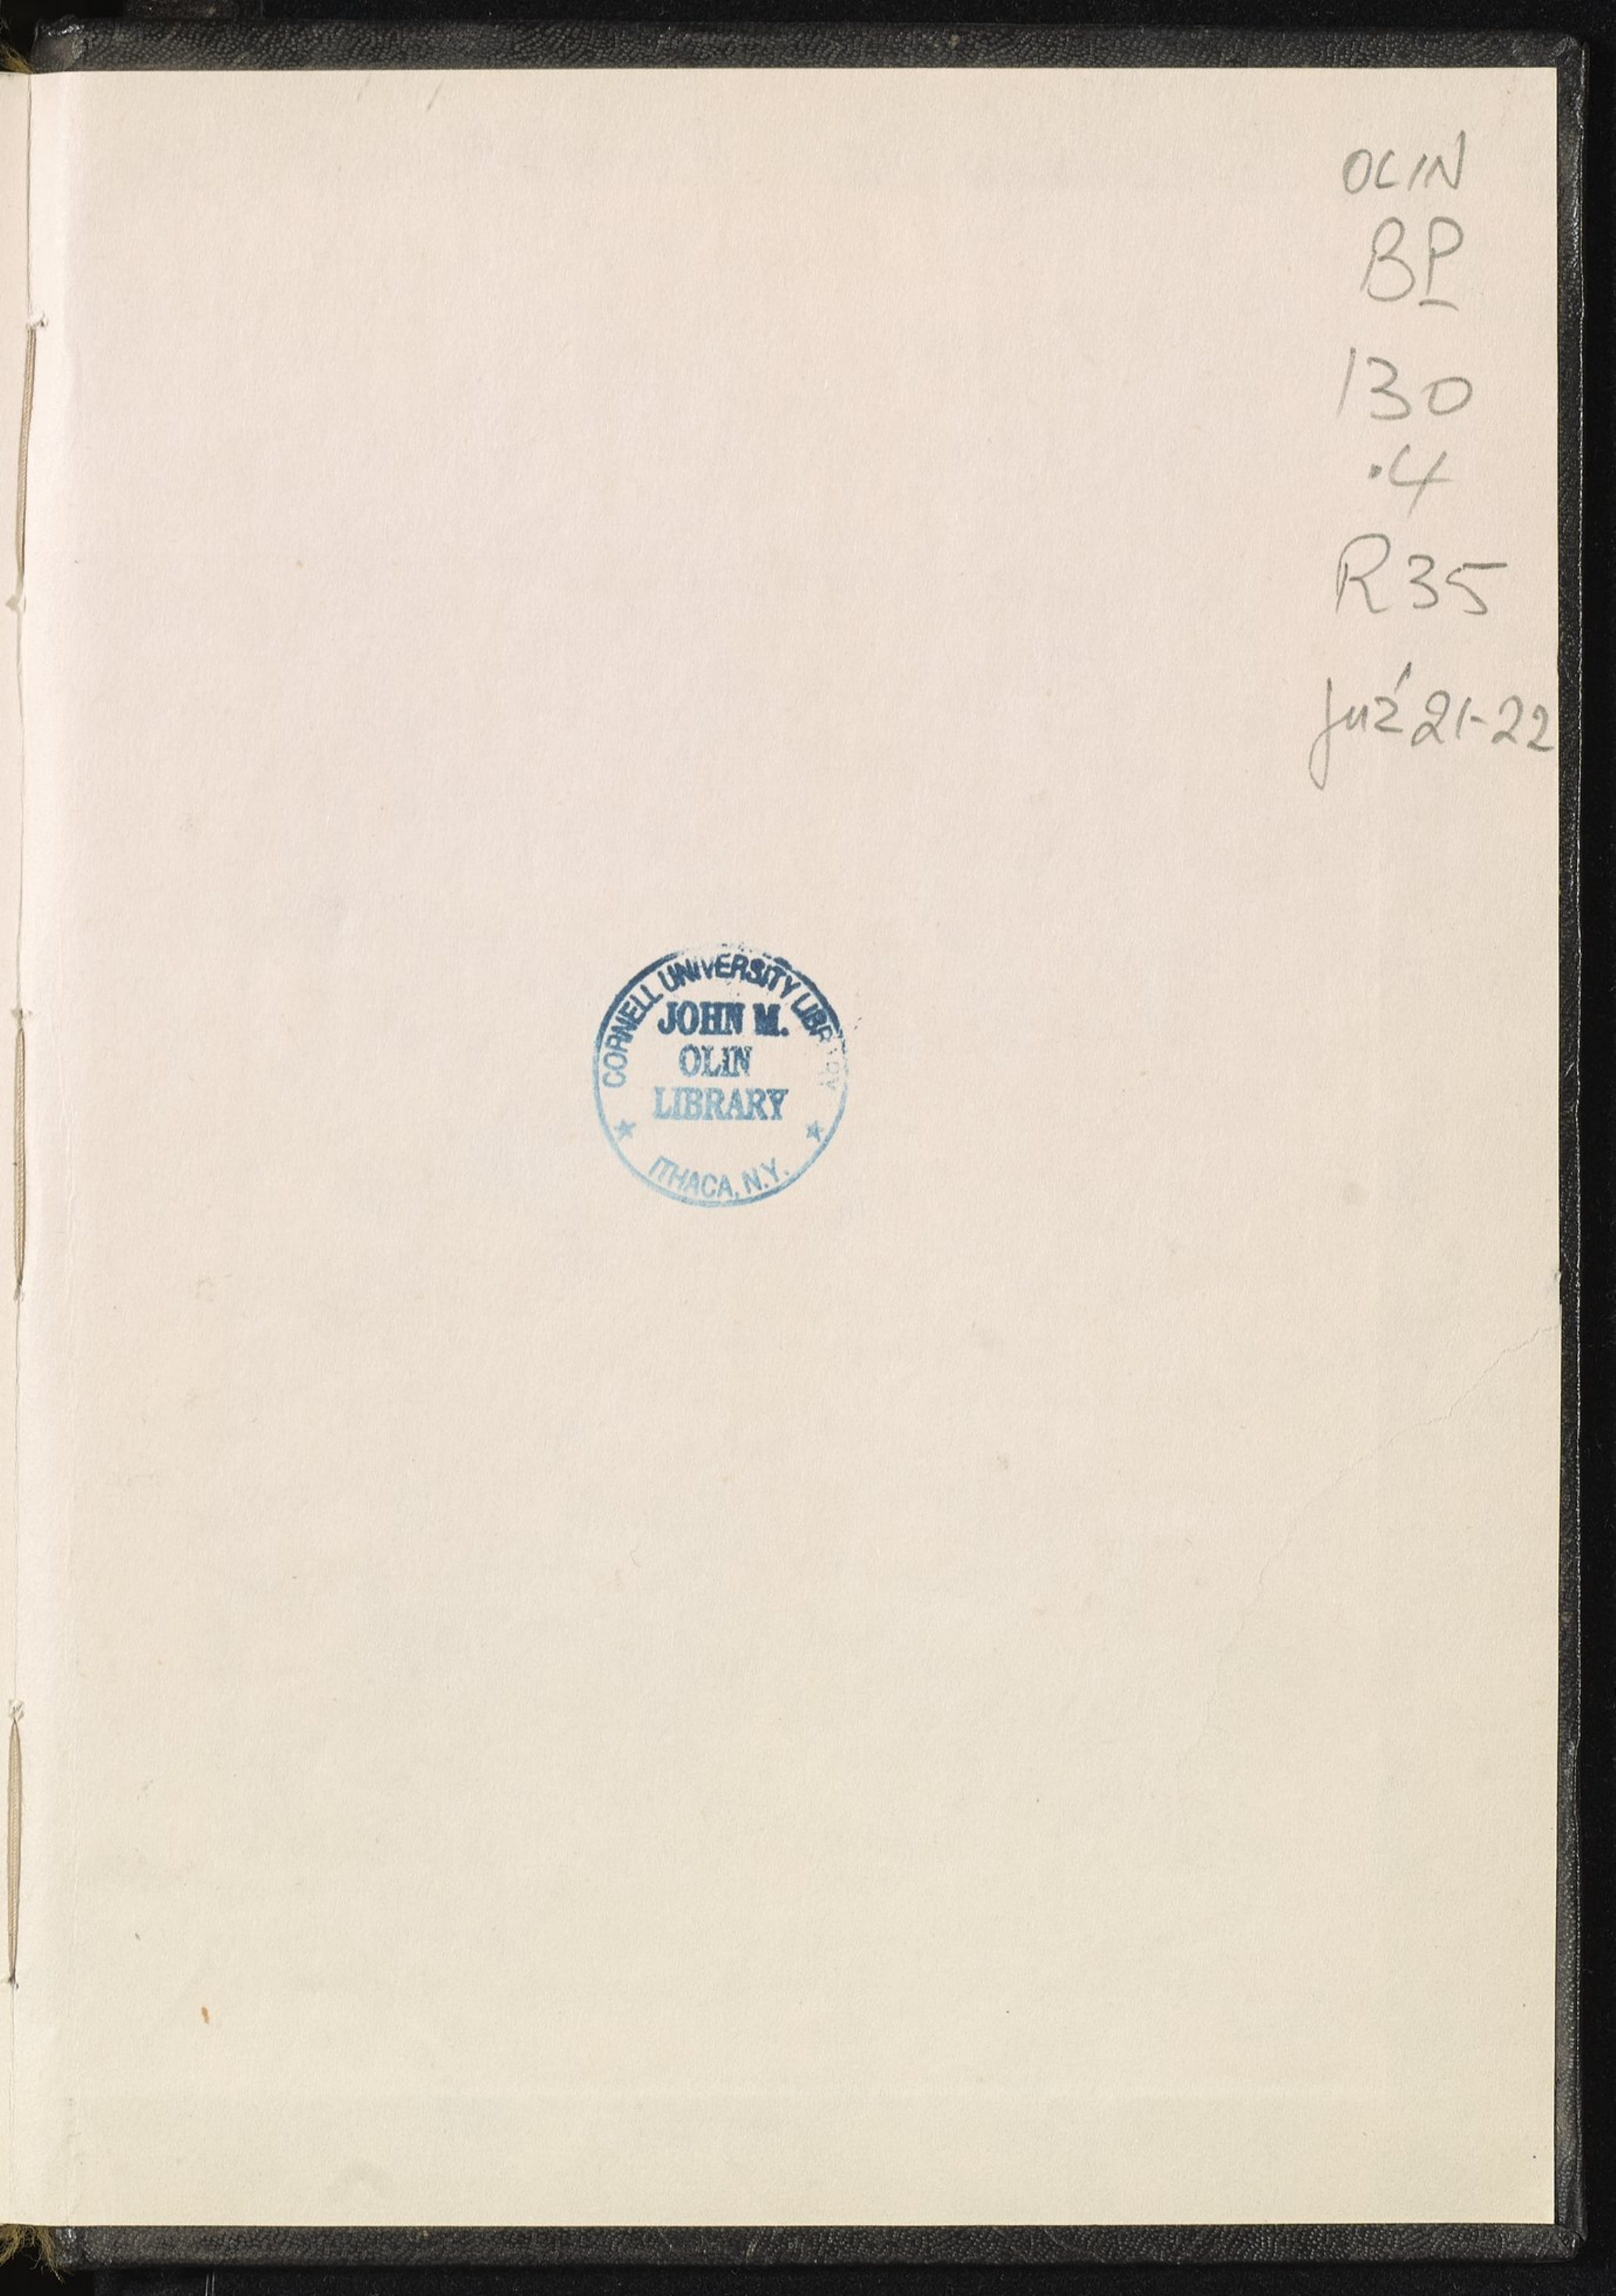 OLIN
BP
130
.4
R35
juz' 21-22
CORNELL UNIVERSITY LIBRARY
JOHN M.
OLIN
LIBRARY
ITHACA, N.Y.